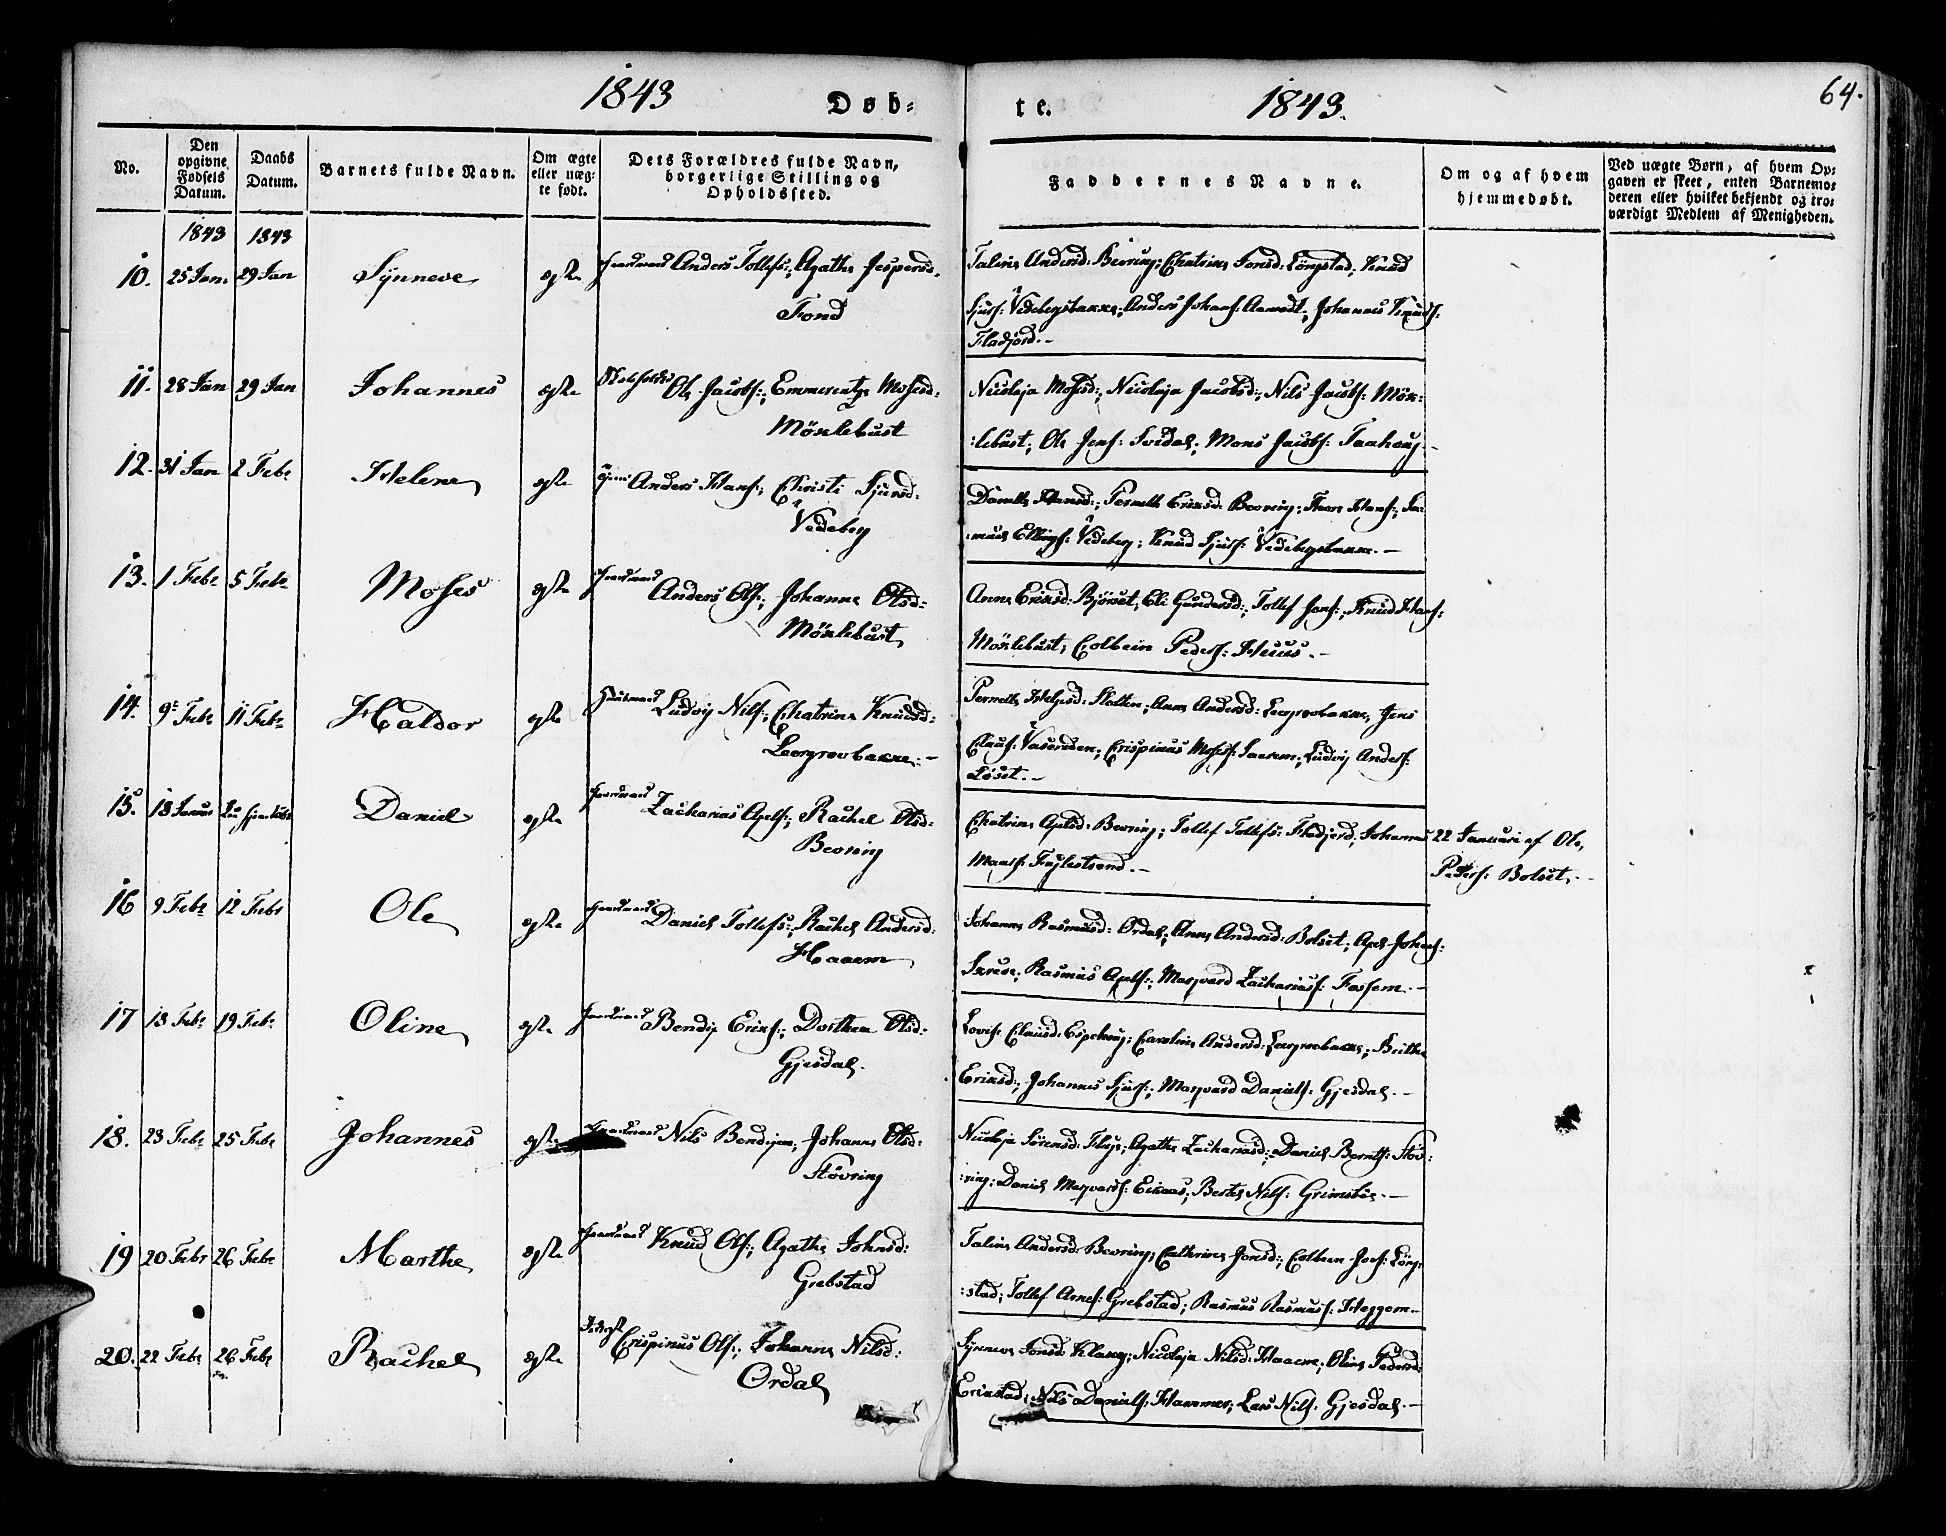 1843 Døb-
te. 1843. 64.
No.
Den opgivne Fødsels Datum.
Daabs Datum.
Barnets fulde Navn.
Om ægte eller uægte født.
Dets Forældres fulde Navn, borgerlige Stilling og Opholdssted.
Faddernes Navne.
Om og af hvem hjemmedøbt.
Ved uægte Børn, af hvem Opgaven er skeet, enten Barnemoderen eller hvilket bekjendt og troværdigt Medlem af Menigheden.
1843 1843
10. 25 Jan. 29 Jan Synneve ægte Anders Tollefs:, Agathe Jespersd.
Fond
Taline Andersd: Bevring; Chatrine Jonsd: Löngstad; Knud
Sjurs: Vedebergsbakke; Anders Johans: Aamodt; Johannes Knuds:
Fladjord.-
11. 28 Jan 29 Jan Johannes ægte Ole Jacobs:, Emmerentze Mosesd:
Möklebust
Nicolaja Mosesd:, Nicolaja Jacobsd:, Nils Jacobs: Mök-
:lebust; Ole Jens: Svidal; Mons Jacobs: Taahaug.-
12. 31 Jan 2 Febr Helene ægte Anders Hans:, Christi Sjursd:
Vedeberg
Dorrethe Hansd:, Pernelle Eriksd: Bevring;
Ellings: Vedeberg; Knud Sjurs: Vedebergsbakke.-
13. 1 Febr 5 Febr Moses ægte Anders Ols:, Johanne Olsd:
Möklebust
Anne Eriksd: Bjørset; Eli Gundersd:, Tollef Jens:, Knud Hans:
Möklebust; Colbein Peders: Huus.-
14. 9 Febr 11 Febr Haldor ægte Huusmand Ludvig Nils:, Chatrine Knudsd:
Leergrovbakke.-
Pernelle Helgesd: Sletten; Anne Andersd: Leergrovbakke; Jens
Claus: Vasenden; Crispinus Moses: Saanem; Ludvig Anders:
Löset.-
15. 13 Januar Daniel ægte Zacharias Apels:, Rachel Olsd:
Bevring
Chatrine Apelsd: Bevring; Tollef Tollefs: Fladjord; Johannes
Maars: Fuglestrand.-
22 Januari af Ole
Peders: Bolset.-
16 9 Febr 12 Febr Ole ægte Daniel Tollefs:, Rachel Andersd:
Haaem
Johanne Rasmusd: Ordal; Anne Andersd: Bolset; Apel Johans:
Rasmus Apels:, Marqvard Zacharias: Fossem.-
17 13 Febr 19 Febr Oline ægte Bendix Eriks:, Dorthea Olsd:
Gjesdal.
Lovise Clausd: Espehoug; Caroline Andersd: Leergrovbakke; Brithe
Eriksd:, Johannes Sjurs:, Marqvard Daniels: Gjesdal.-
18. 23 Febr 25 Febr Johannes ægte Nils Bendixen, Johanne Olsd:
Stövring
Nicolaja Sörensd: Flage; Agathe Zachariasd:, Daniel Bernts: Stöv-
:ring; Daniel Marqvards: Eikaas; Berthel Nils: Grimsböe.-
19 20 Febr 26 Febr Marthe ægte Knud Ols:, Agathe Johnsd:
Grebstad
Taline Andersd: Bevring; Cathrine Jonsd:, Colbeen Joes: Löng-
:stad; Tollef Arnes: Grebstad; Rasmus Rasmus: Heggem.-
20. 22 Febr 26 Febr Rachel ægte Crispinus Ols:, Johanne Nilsd:
Ordal
Synneve Jonsd: Klaxeg; Nicolaja Nilsd: Haaem; Oline Pedersd:
Erikstad; Nils Daniels: Hammer; Lars Nils: Gjesdal.-